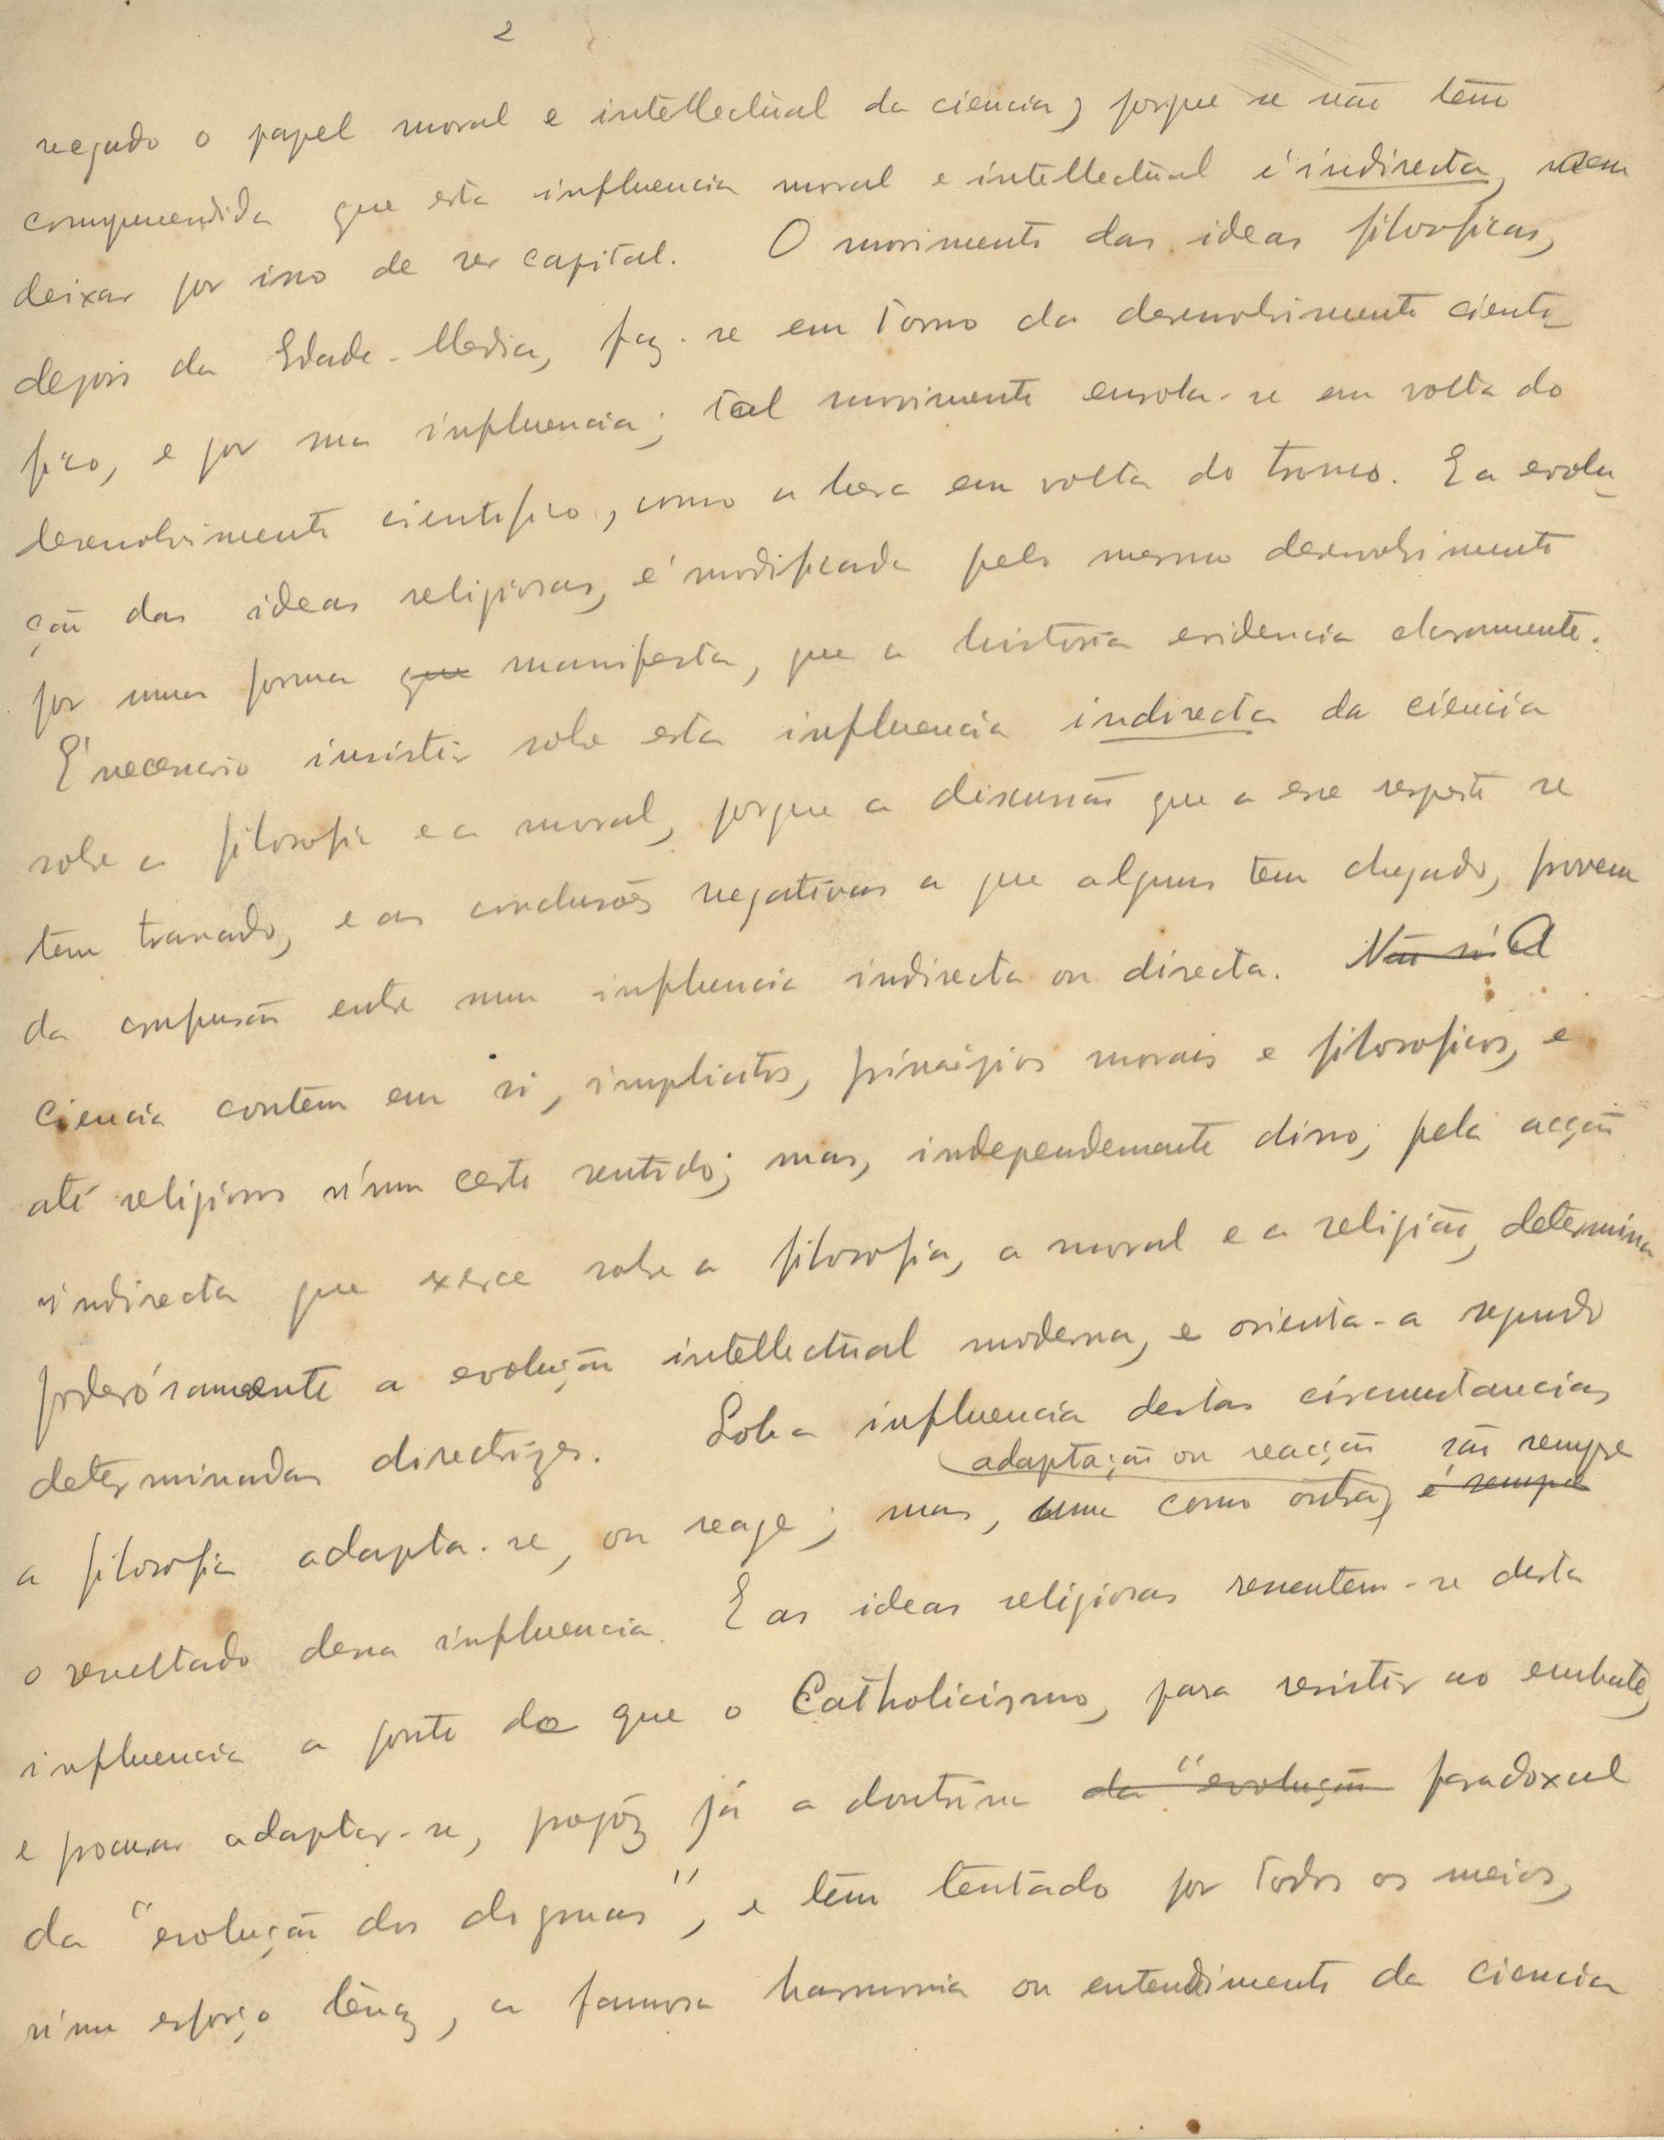 2
negado o papel moral e intellectual da ciencia, porque se não tem
comprehendida que esta influencia moral e intellectual é indirecta, sem
deixar por isso de ser capital. O movimento das ideas filosoficas,
depois da Edade-Media, faz-se em torno do desenvolvimento cienti_
fico, e por sua influencia; tal movimento enrola-se em volta do
desenvolvimento cientifico, como a hera em volta do tronco. E a evolu_
ção das ideas religiosas, é modificada pelo mesmo desenvolvimento
por uma forma que manifesta, que a historia evidencia claramente.
É necessario insistir sobre esta influencia indirecta da ciencia
sobre a filosofia e a moral, porque a discussão que a esse respeito se
tem travado, e as conclusões negativas a que alguns tem chegado, provem
da confusão entre uma influencia indirecta ou directa. Não só A
Ciencia contem em si, implicitos, principios morais e filosoficos, e
até religiosos n'um certo sentido; mas, independemente disso, pela acção
indirecta que exerce sobre a filosofia, a moral e a religião, determina
poderósamente a evolução intellectual moderna, e orienta-a segundo
determinadas directrizes. Sob a influencia destas circumstancias,
adaptação ou reacção são sempre
a filosofia adapta-se, ou reage; mas, uma como outra, é sempre
o resultado dessa influencia. E as ideas religiosas resentem-se desta
influencia a ponto de que o Catholicismo, para resistir ao embate,
e procurar adaptar-se, propôz já a doutrina da "evolução paradoxal
da "evolução dos dogmas", e têm tentado por todos os meios,
n'um esforço tenaz, a famosa harmonia ou entendimento da ciencia